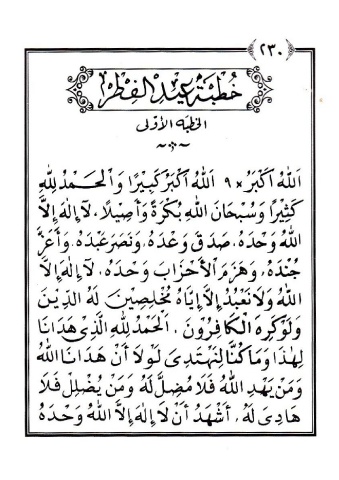 ٢٣٠
خُطْبَةُ عِيْدِ الْفِطْرِ
الخطبه الأولى
اَللهُ أَكْبَرُ ×٩ اَللهُ أَكْبَرُ كَبِيْرًا وَالْحَمْدُ لِلّٰهِ
كَثِيْرًا وَسُبْحَانَ اللهِ بُكْرَةً وَأَصِيْلًا، لَا إِلٰهَ إِلَّا
اللهُ وَحْدَهُ، صَدَقَ وَعْدَهُ، وَنَصَرَ عَبْدَهُ، وَأَعَزَّ
جُنْدَهُ، وَهَزَمَ الْأَحْزَابَ وَحْدَهُ، لَا إِلٰهَ إِلَّا
اللهُ وَلَا نَعْبُدُ إِلَّا إِيَّاهُ مُخْلِصِيْنَ لَهُ الدِّيْنَ
وَلَوْ كَرِهَ الْكَافِرُوْنَ. اَلْحَمْدُ لِلّٰهِ الَّذِيْ هَدَانَا
لِهٰذَا وَمَا كُنَّا لِنَهْتَدِيَ لَوْلَا أَنْ هَدَانَا اللهُ
وَمَنْ يَهْدِ اللهُ فَلَا مُضِلَّ لَهُ وَمَنْ يُضْلِلْ فَلَا
هَادِيَ لَهُ، أَشْهَدُ أَنْ لَا إِلٰهَ إِلَّا اللهُ وَحْدَهُ